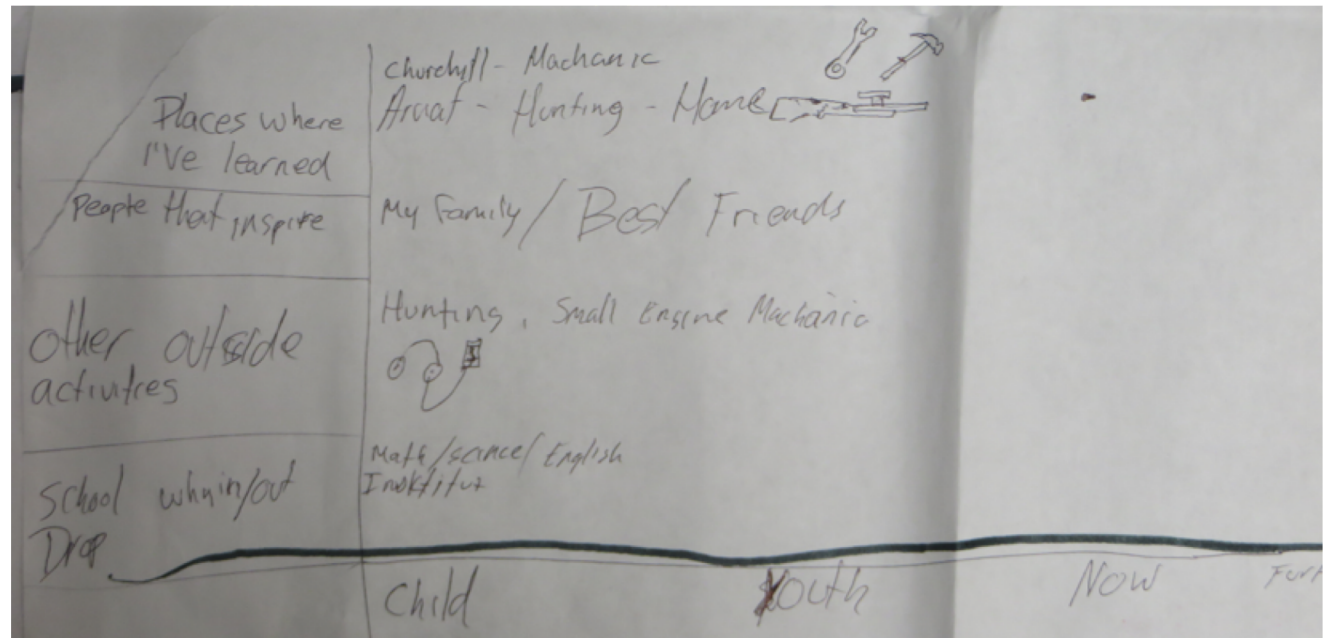 Places where
I've learned
Churchill - Machanic
Aruat - Hunting - Home
People that inspire
My Family / Best Friends
other outside
activitres
Hunting, Small Engine Machanic
School whyin/out
Drop
Math/scince/English
Inuktitut
Child Youth Now